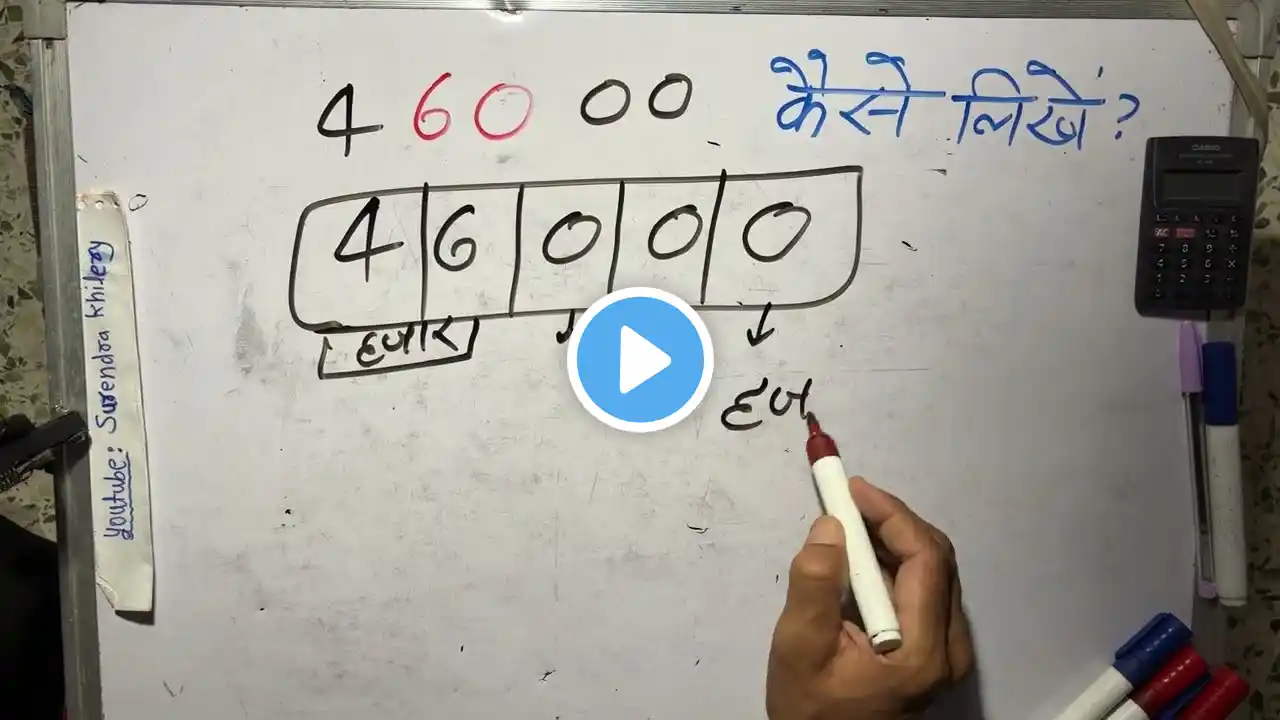 4 60 00 कैसे लिखें?
4 6 0 0 0
हजार
हजा
Youtube: Surendra Khilery
CASIO